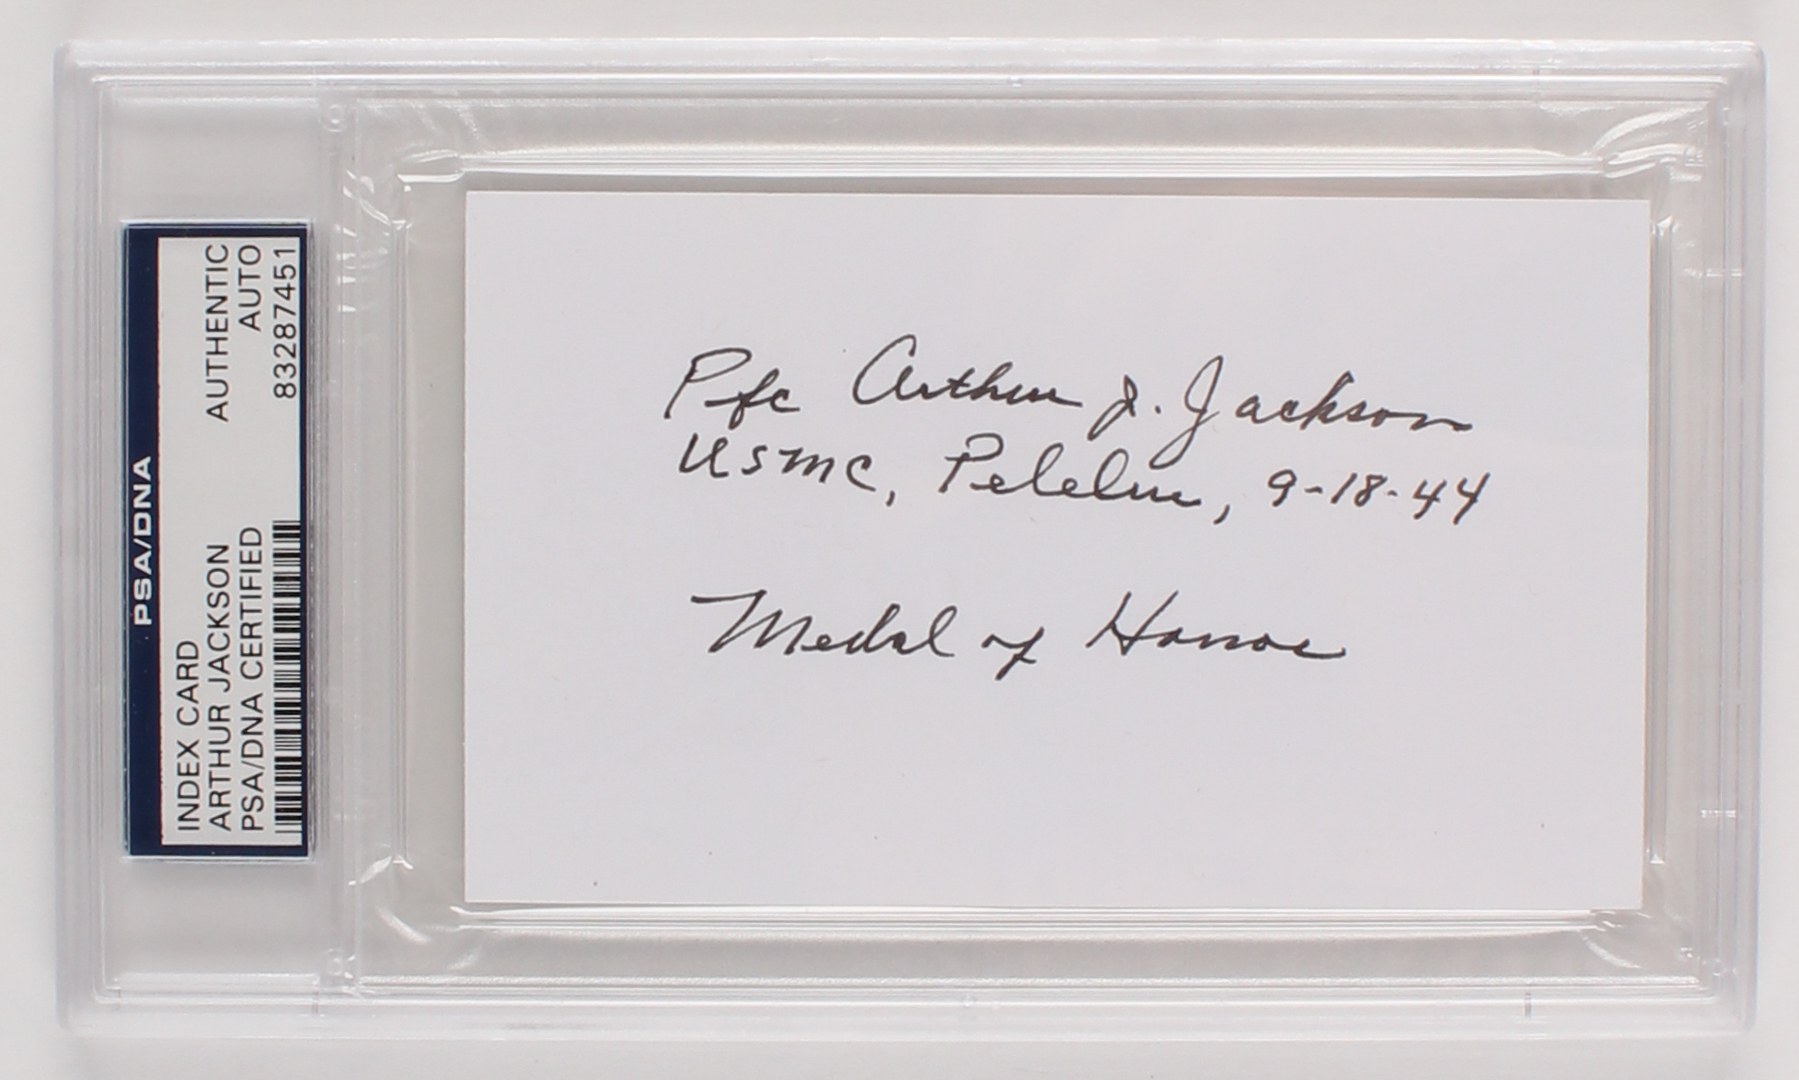 PSA/DNA
INDEX CARD
ARTHUR JACKSON AUTHENTIC
PSA/DNA CERTIFIED AUTO
83287451
Pfc Arthur J. Jackson
USMC, Peleliu, 9-18-44
Medal of Honor